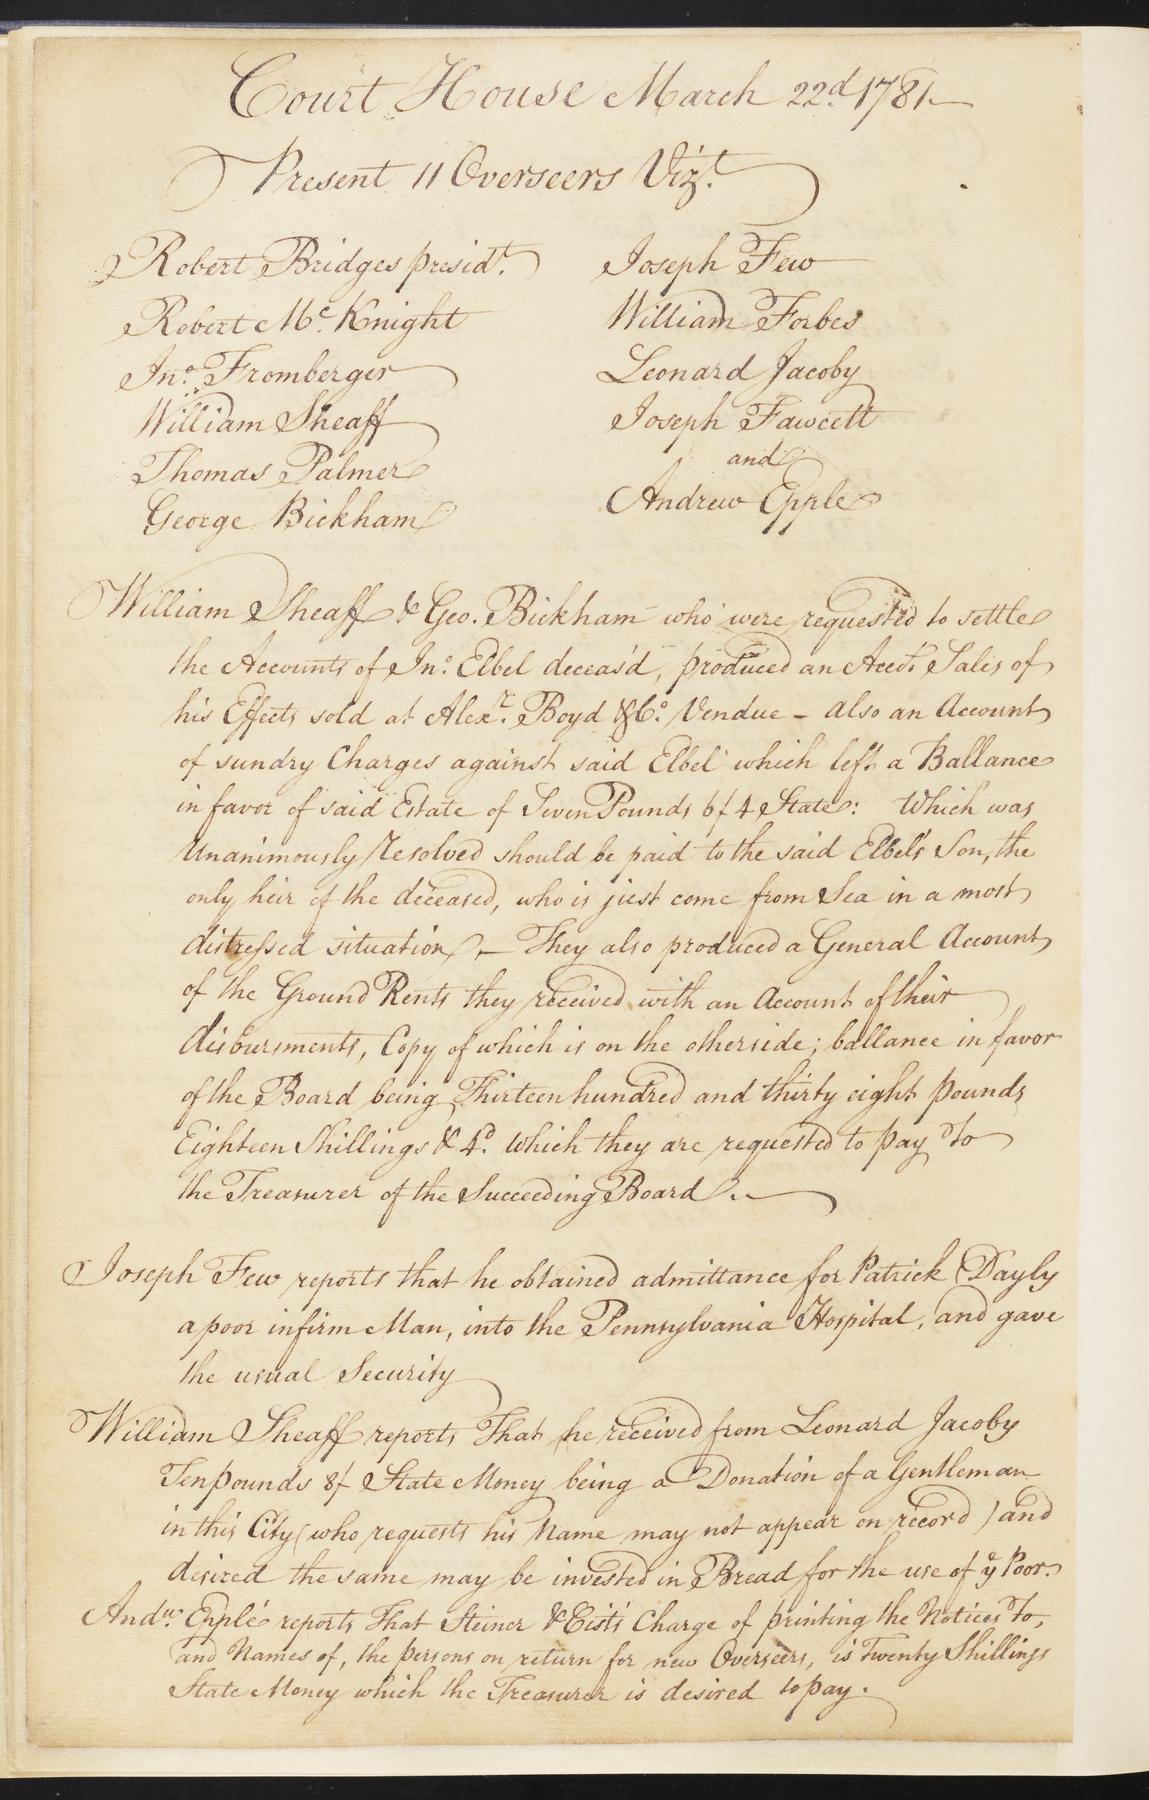 Court House March 22d. 1781.
Present 11 Overseers Vizt.
Robert Bridges presidt.
Robert Mc. Knight
Jno. Fromberger
William Sheaff
Thomas Palmer
George Bickham
Joseph Few
William Forbes
Leonard Jacoby
Joseph Fawcett
and
Andrew Epple
William Sheaff & Geo. Bickham who were requested to settle
the Accounts of Jno. Elbel deceas'd, produced an Acct. Sales of
his Effects sold at Alexr. Boyd & Co. Vendue - also an Account
of sundry Charges against said Elbel which left a Ballance
in favor of said Estate of Seven Pounds 6/4 State: Which was
Unanimously resolved should be paid to the said Elbel's Son, the
only heir of the deceased, who is just come from Sea in a most
distressed situation, - They also produced a General Account
of the Ground Rents they received with an Account of their
disbursments, Copy of which is on the otherside; ballance in favor
of the Board being Thirteen hundred and thirty eight pounds
Eighteen Shillings & 4d. which they are requested to pay to
the Treasurer of the Succeeding Board.
Joseph Few reports that he obtained admittance for Patrick Dayly
a poor infirm Man, into the Pennsylvania Hospital, and gave
the usual Security
William Sheaff reports That he received from Leonard Jacoby
Ten pounds 8/ State Money being a Donation of a Gentleman
in this City (who requests his Name may not appear on record) and
desired the same may be invested in Bread for the use of ye Poor.
Andw. Epple reports That Steiner & Cist's Charge of printing the Notices to,
and Names of, the persons on return for new Overseers, is Twenty Shillings
State Money which the Treasurer is desired to pay.